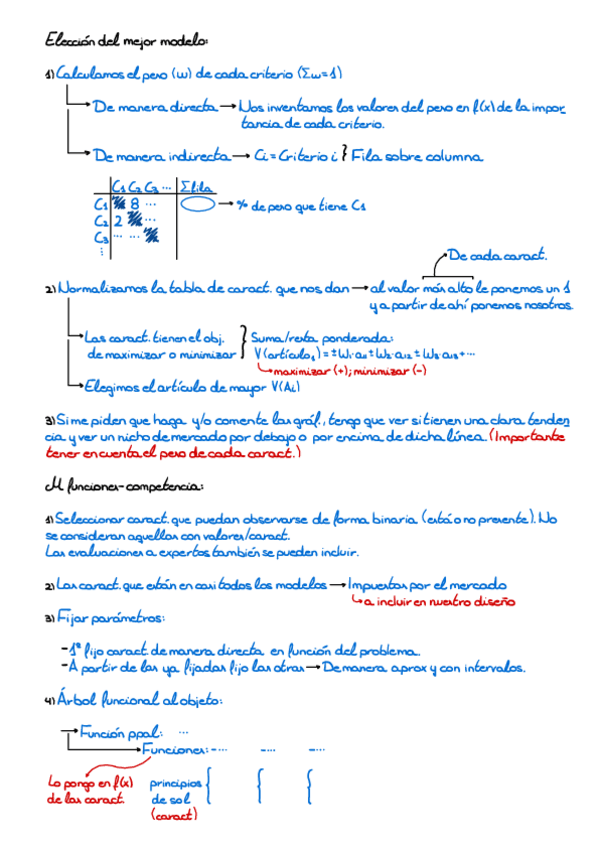 Elección del mejor modelo:
1) Calculamos el peso (w) de cada criterio (Σw=1)
De manera directa → Nos inventamos los valores del peso en f(x) de la impor
tancia de cada criterio.
De manera indirecta → Ci = Criterio i } Fila sobre columna
C1 C2 C3 ... Σfila
C1 8 ... → % de peso que tiene C1
C2 2 ...
C3 ... ...
⋮
De cada caract.
2) Normalizamos la tabla de caract. que nos dan → al valor más alto le ponemos un 1
y a partir de ahí ponemos nosotros.
Las caract. tienen el obj. } Suma/resta ponderada:
de maximizar o minimizar V(artículo1) = ±W1·a11 ± W2·a12 ± W3·a13 + ...
maximizar (+); minimizar (-)
Elegimos el artículo de mayor V(Ai)
3) Si me piden que haga y/o comente las gráf., tengo que ver si tienen una clara tenden
cia y ver un nicho de mercado por debajo o por encima de dicha línea. (Importante
tener en cuenta el peso de cada caract.)
M funciones-competencia:
1) Seleccionar caract. que puedan observarse de forma binaria (está o no presente). No
se consideran aquellas con valores/caract.
Las evaluaciones a expertos también se pueden incluir.
2) Las caract. que están en casi todos los modelos → Impuestas por el mercado
a incluir en nuestro diseño
3) Fijar parámetros:
-1º fijo caract de manera directa en función del problema.
-A partir de las ya fijadas fijo las otras → De manera aprox y con intervalos.
4) Árbol funcional al objeto:
Función ppal: ...
Funciones: -... -... -...
Lo pongo en f(x) principios { { {
de las caract. de sol
(caract)